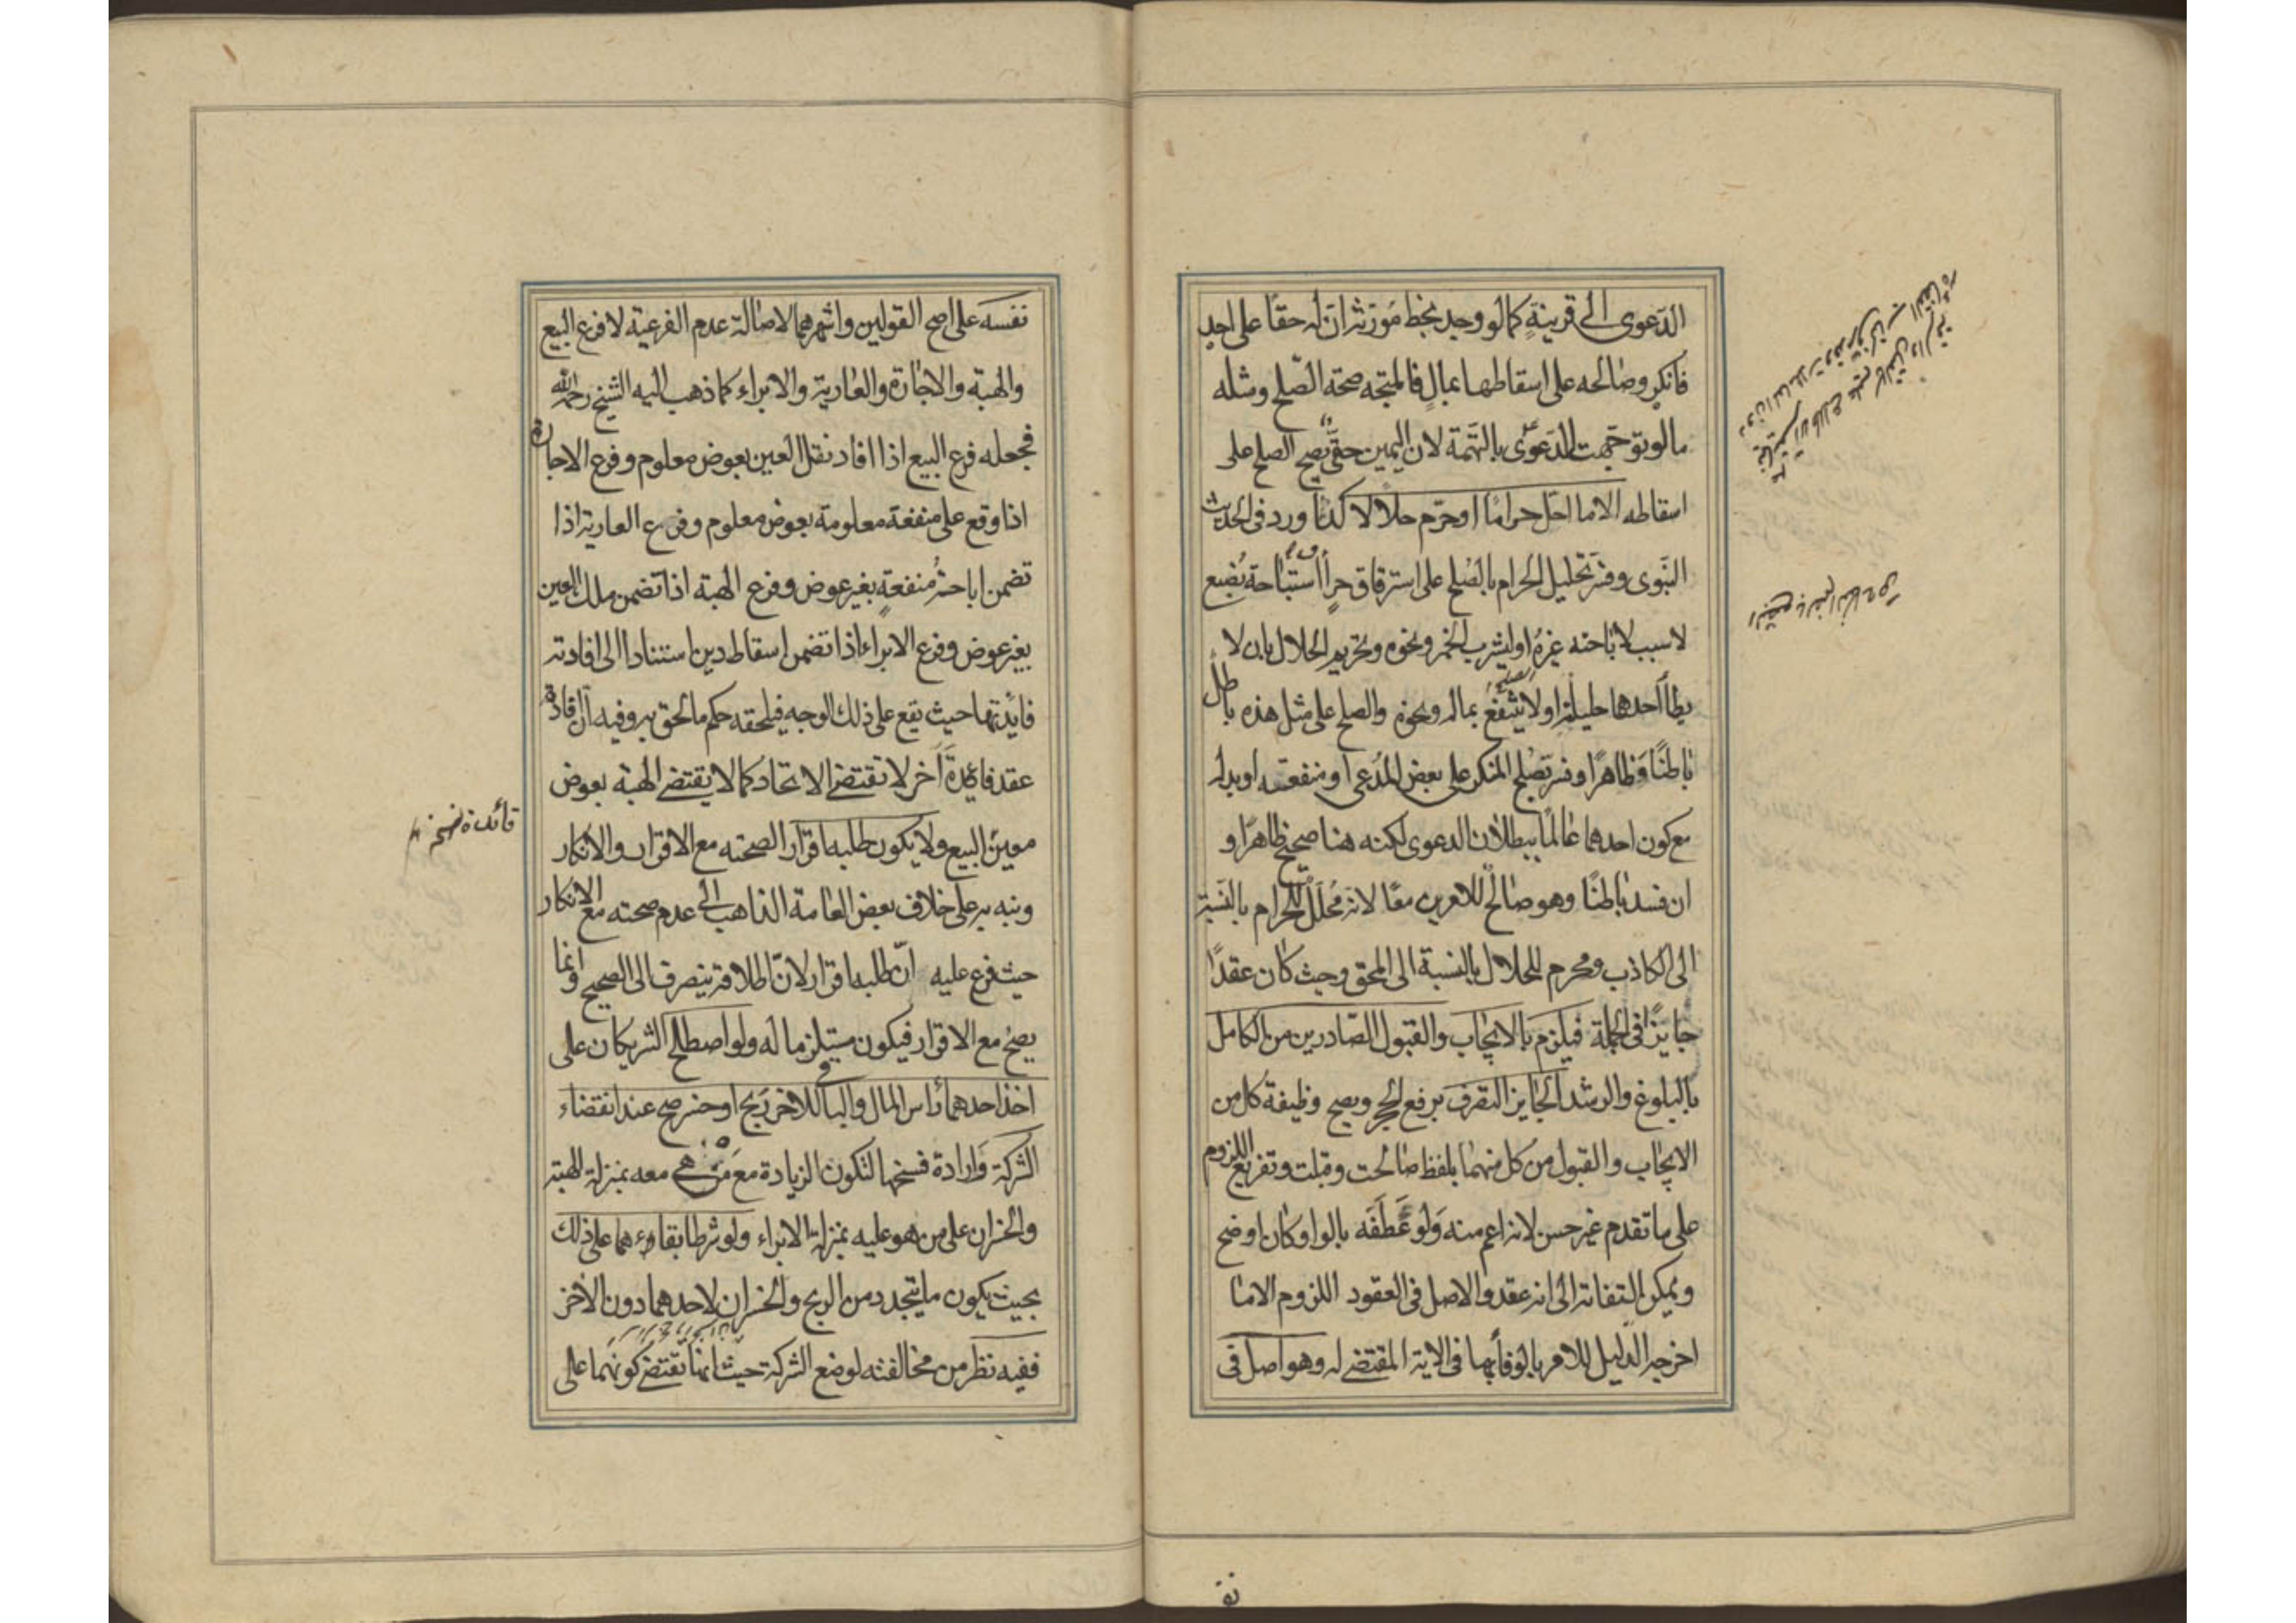 الدّعوى الى قرينةٍ كما لو وجد بخط مورّثه ان له حقا على احد
فانكر وصالحه على اسقاطها بمالٍ فالمتجه صحة الصّلح ومثله
ما لو توجّهت الدّعوى بالتهمة لان اليمين حقّ يصح الصلح على
اسقاطه الا ما احلّ حراما او حرّم حلالا كذا ورد فى الحديث
النّبوى وفسّر تحليل الحرام بالصّلح على استرقاق حرٍ او استباحة بُضع
لا سبب لاباحته غيرهُ او ليشرب الخمر ونحوه وتحريم الحلال بان لا
يطأ احدهما حليلته او لا ينتفع بماله ونحوه والصلح على مثل هذه باطل
باطنًا وظاهرًا وفسر بصلح المنكر على بعض المُدعى او منفعته او بدله
مع كون احدهما عالمًا ببطلان الدعوى لكنه هنا صحيح ظاهرًا و
ان فسد باطنًا وهو صالح للامرين معًا لانه مُحلّل للحرام بالنسبة
الى الكاذب ومحرم للحلال بالنسبة الى المحق وحيث كان عقدًا
جايزًا فى الجملة فيلزم بالايجاب والقبول الصّادرين من الكامل
بالبلوغ والرشد الجايز التصرف برفع الحجر ويصح وظيفة كل من
الايجاب والقبول من كل منهما بلفظ صالحت وقبلت وتفريع اللزوم
على ما تقدم غير حسن لانه اعم منه ولو عَطَفَه بالواو كان اوضح
ويمكن التفاته الى انه عقد والاصل فى العقود اللزوم الا ما
اخرجه الدليل للامر بالوفأ بها فى الاية المقتضى له وهو اصل فى
البضع بالضم النكاح ص
نف
نفسه على اصح القولين واشهرهما لاصالة عدم الفرعية لا فرع البيع
والهبة والاجارة والعارية والابراء كما ذهب اليه الشيخ رحمه الله
فجعله فرع البيع اذا افاد نقل العين بعوض معلوم وفرع الاجارة
اذا وقع على منفعة معلومة بعوض معلوم وفرع العارية اذا
تضمن اباحة منفعةٍ بغير عوض وفرع الهبة اذا تضمن ملك العين
بغير عوض وفرع الابراء اذا تضمن اسقاط دين استنادا الى افادته
فايدتها حيث يقع على ذلك الوجه فيلحقه حكم ما لحق به وفيه ان افادة
عقد فائدة آخر لا تقتضى الاتحاد كما لا يقتضى الهبة بعوض
معين البيع ولا يكون طلبه اقرار الصحته مع الاقرار والانكار
ونبه به على خلاف بعض العامة الذاهب الى عدم صحته مع الانكار
حيث فرع عليه انّ طلبه اقرار لانّ اطلاقه ينصرف الى الصحيح وانما
يصح مع الاقرار فيكون مستلزما له ولو اصطلح الشريكان على
اخذ احدهما رأس المال والباقى للاخر ربح او خسر صح عند انقضاء
الشركة وارادة فسخها لتكون الزيادة مع من هى معه بمنزلة الهبة
والخسران على من هو عليه بمنزلة الابراء ولو شرطا بقاءهما على ذلك
بحيث يكون ما يتجدد من الربح والخسران لاحدهما دون الآخر
ففيه نظر من مخالفته لوضع الشركة حيث انها تقتضى كونهما على
فائدة نسخه